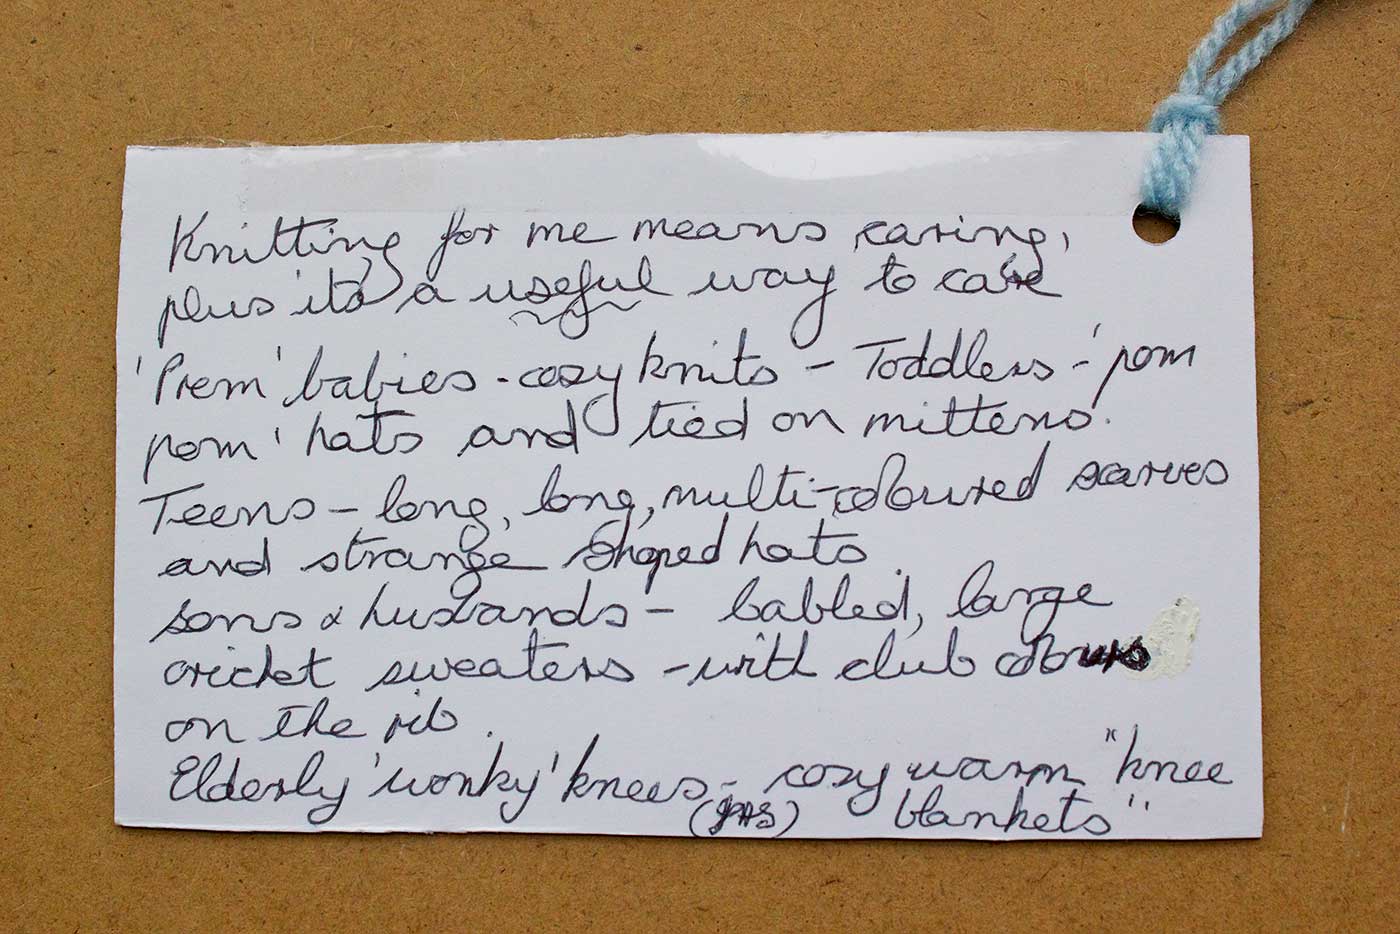 Knitting for me means caring,
plus its a useful way to care
'Prem' babies - cosy knits - Toddlers - 'pom
pom' hats and tied on mittens.
Teens - long, long, multi-coloured scarves
and strange shaped hats.
sons & husbands - babled, large
cricket sweaters - with club colours
on the rib.
Elderly 'wonky' knees - cosy warm "knee
blankets"